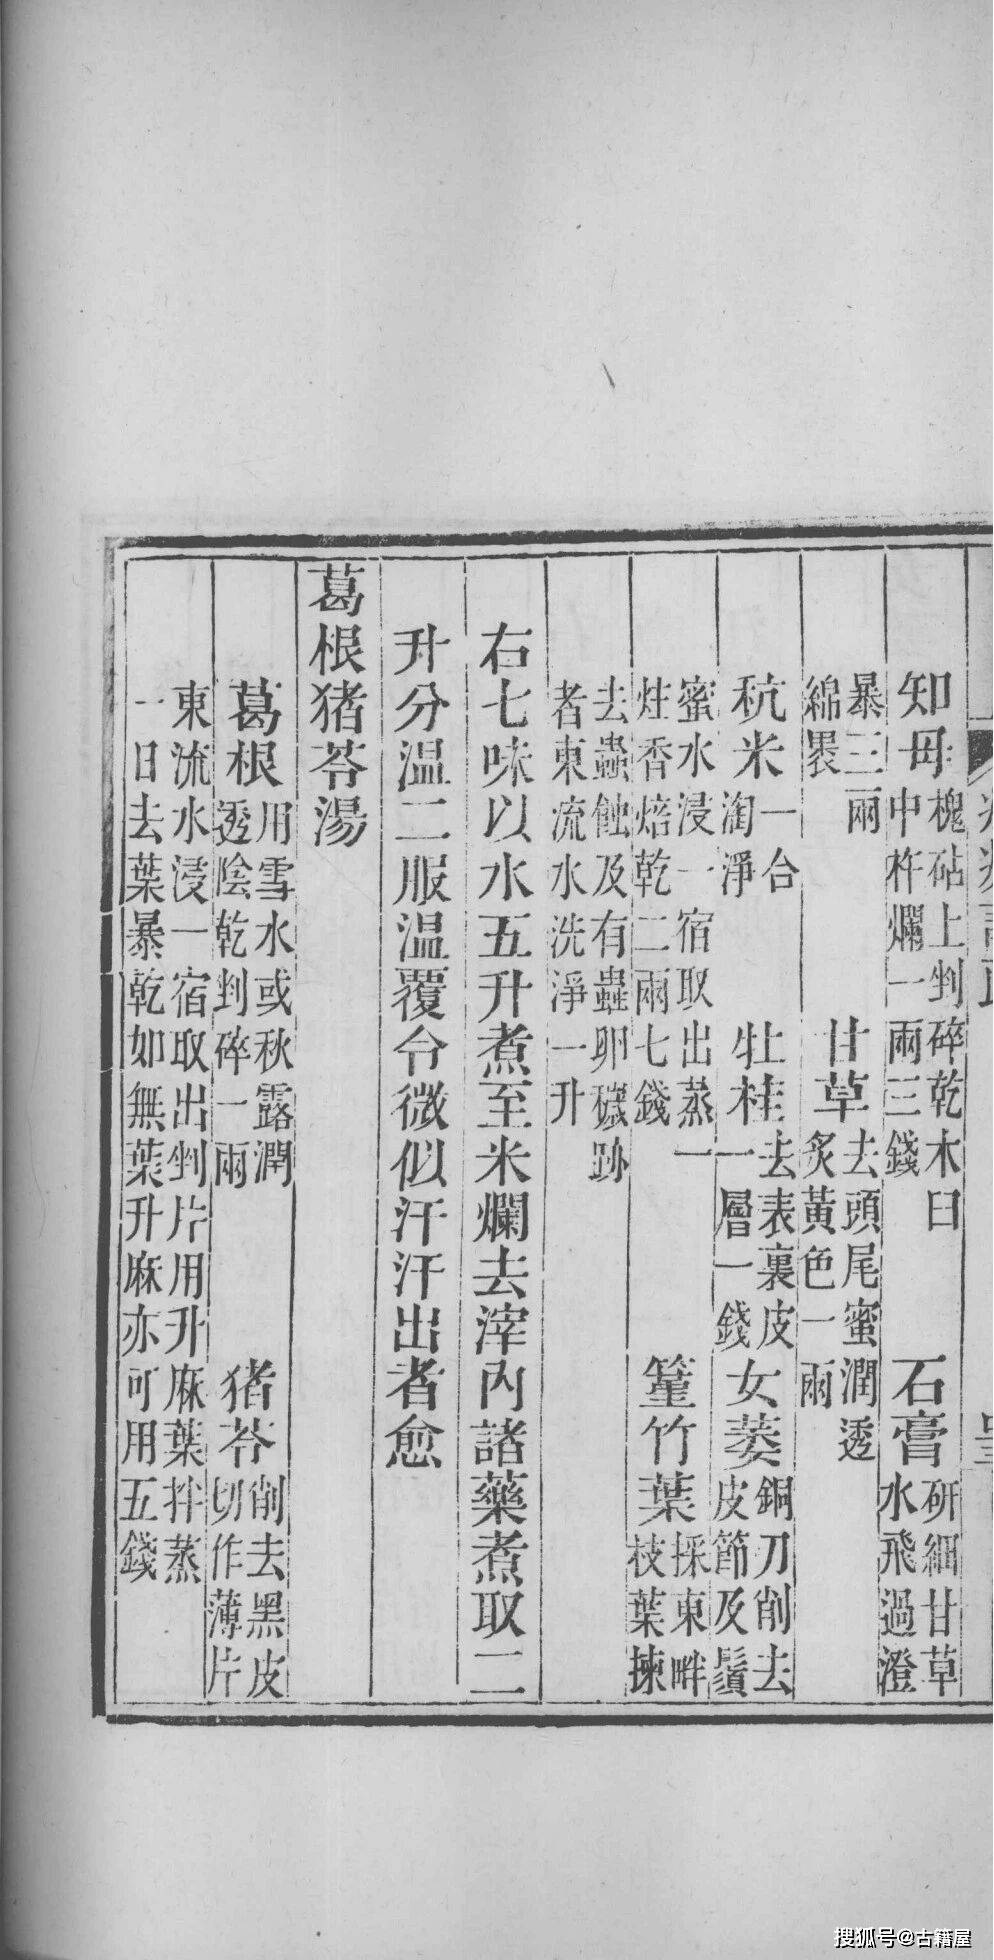 知母槐砧上剉碎乾木臼中杵爛一兩三錢石膏研細甘草水飛過澄
暴三兩綿褁甘草去頭尾蜜潤透炙黃色一兩
秔米一合淘淨牡桂去表裏皮一層一錢女萎銅刀削去皮節及鬚
蜜水浸一宿取出蒸一炷香焙乾二兩七錢篁竹葉採東畔枝葉揀
去蟲蝕及有蟲卵穢跡者東流水洗淨一升
右七味以水五升煮至米爛去滓內諸藥煮取二
升分温二服温覆令微似汗汗出者愈
葛根猪苓湯
葛根用雪水或秋露潤透陰乾剉碎一兩猪苓削去黑皮切作薄片
東流水浸一宿取出剉片用升麻葉拌蒸一日去葉暴乾如無葉升麻亦可用五錢
搜狐号@古籍屋